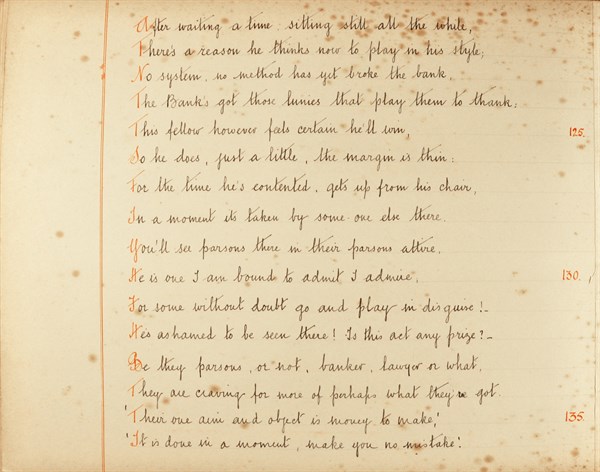 After waiting a time sitting still all the while,
There's a reason he thinks now to play in his style;
No system, no method has yet broke the bank.
The Bank's got those lunies that play them to thank;
This fellow however feels certain he'll win, 125.
So he does, just a little, the margin is thin;
For the time he's contented, gets up from his chair,
In a moment its taken by some one else there.
You'll see parsons there in their parsons attire,
He is one I am bound to admit I admire,  130.
For some without doubt go and play in disguise!-
He's ashamed to be seen there! Is this act any prize?-
Be they parsons, or not, banker, lawyer or what,
They are craving for more of perhaps what they've got.
'Their one aim and object is money to make,' 135.
'It is done in a moment, make you no mistake'.